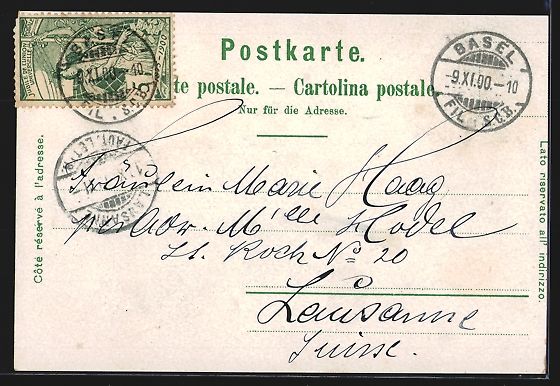 Postkarte.
te postale. — Cartolina postale
Nur für die Adresse.
BASEL
-9.XI.00.-10
FIL. S.C.B.
BASEL
-9.XI.00.-10
FIL. S.C.B.
LAUSANNE
Côté réservé à l'adresse.
Lato riservato all' indirizzo.
Fräulein Marie Haag
per Adr. Mlle Hodel
St. Roch No 20
Lausanne
Suisse.